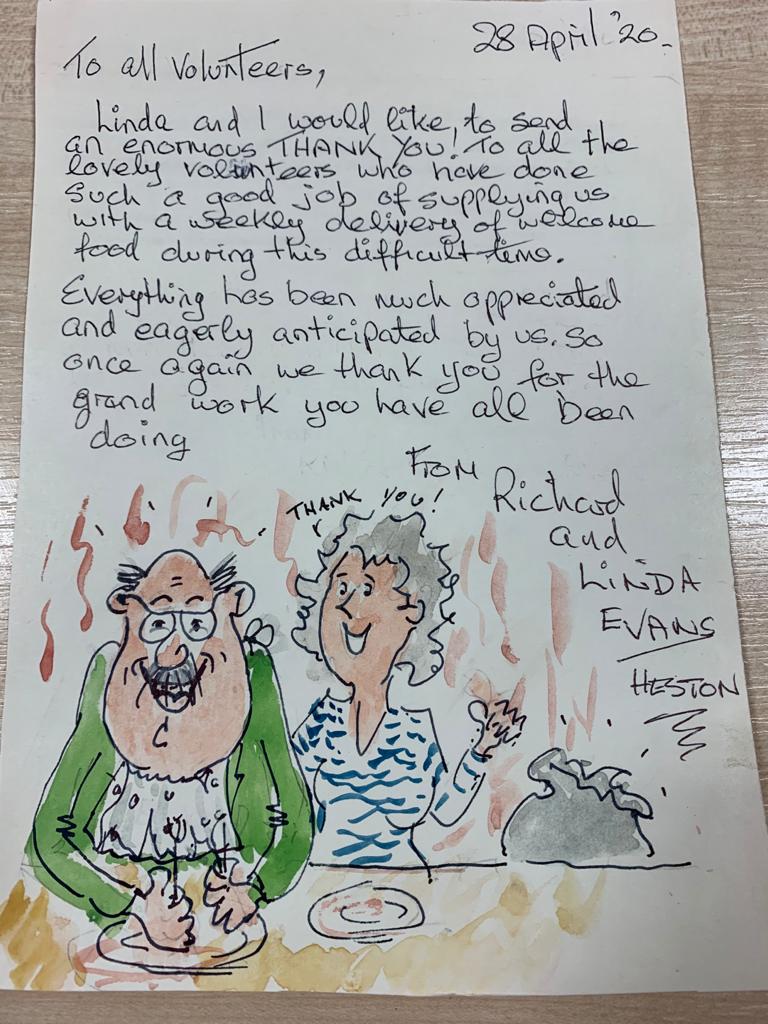 28 April '20.
To all Volunteers,
Linda and I would like, to send
an enormous THANK YOU! To all the
lovely volunteers who have done
such a good job of supplying us
with a weekly delivery of welcome
food during this difficult time.
Everything has been much appreciated
and eagerly anticipated by us. So
once again we thank you for the
grand work you have all been
doing
From
Richard
and
LINDA
EVANS
HESTON
THANK YOU!